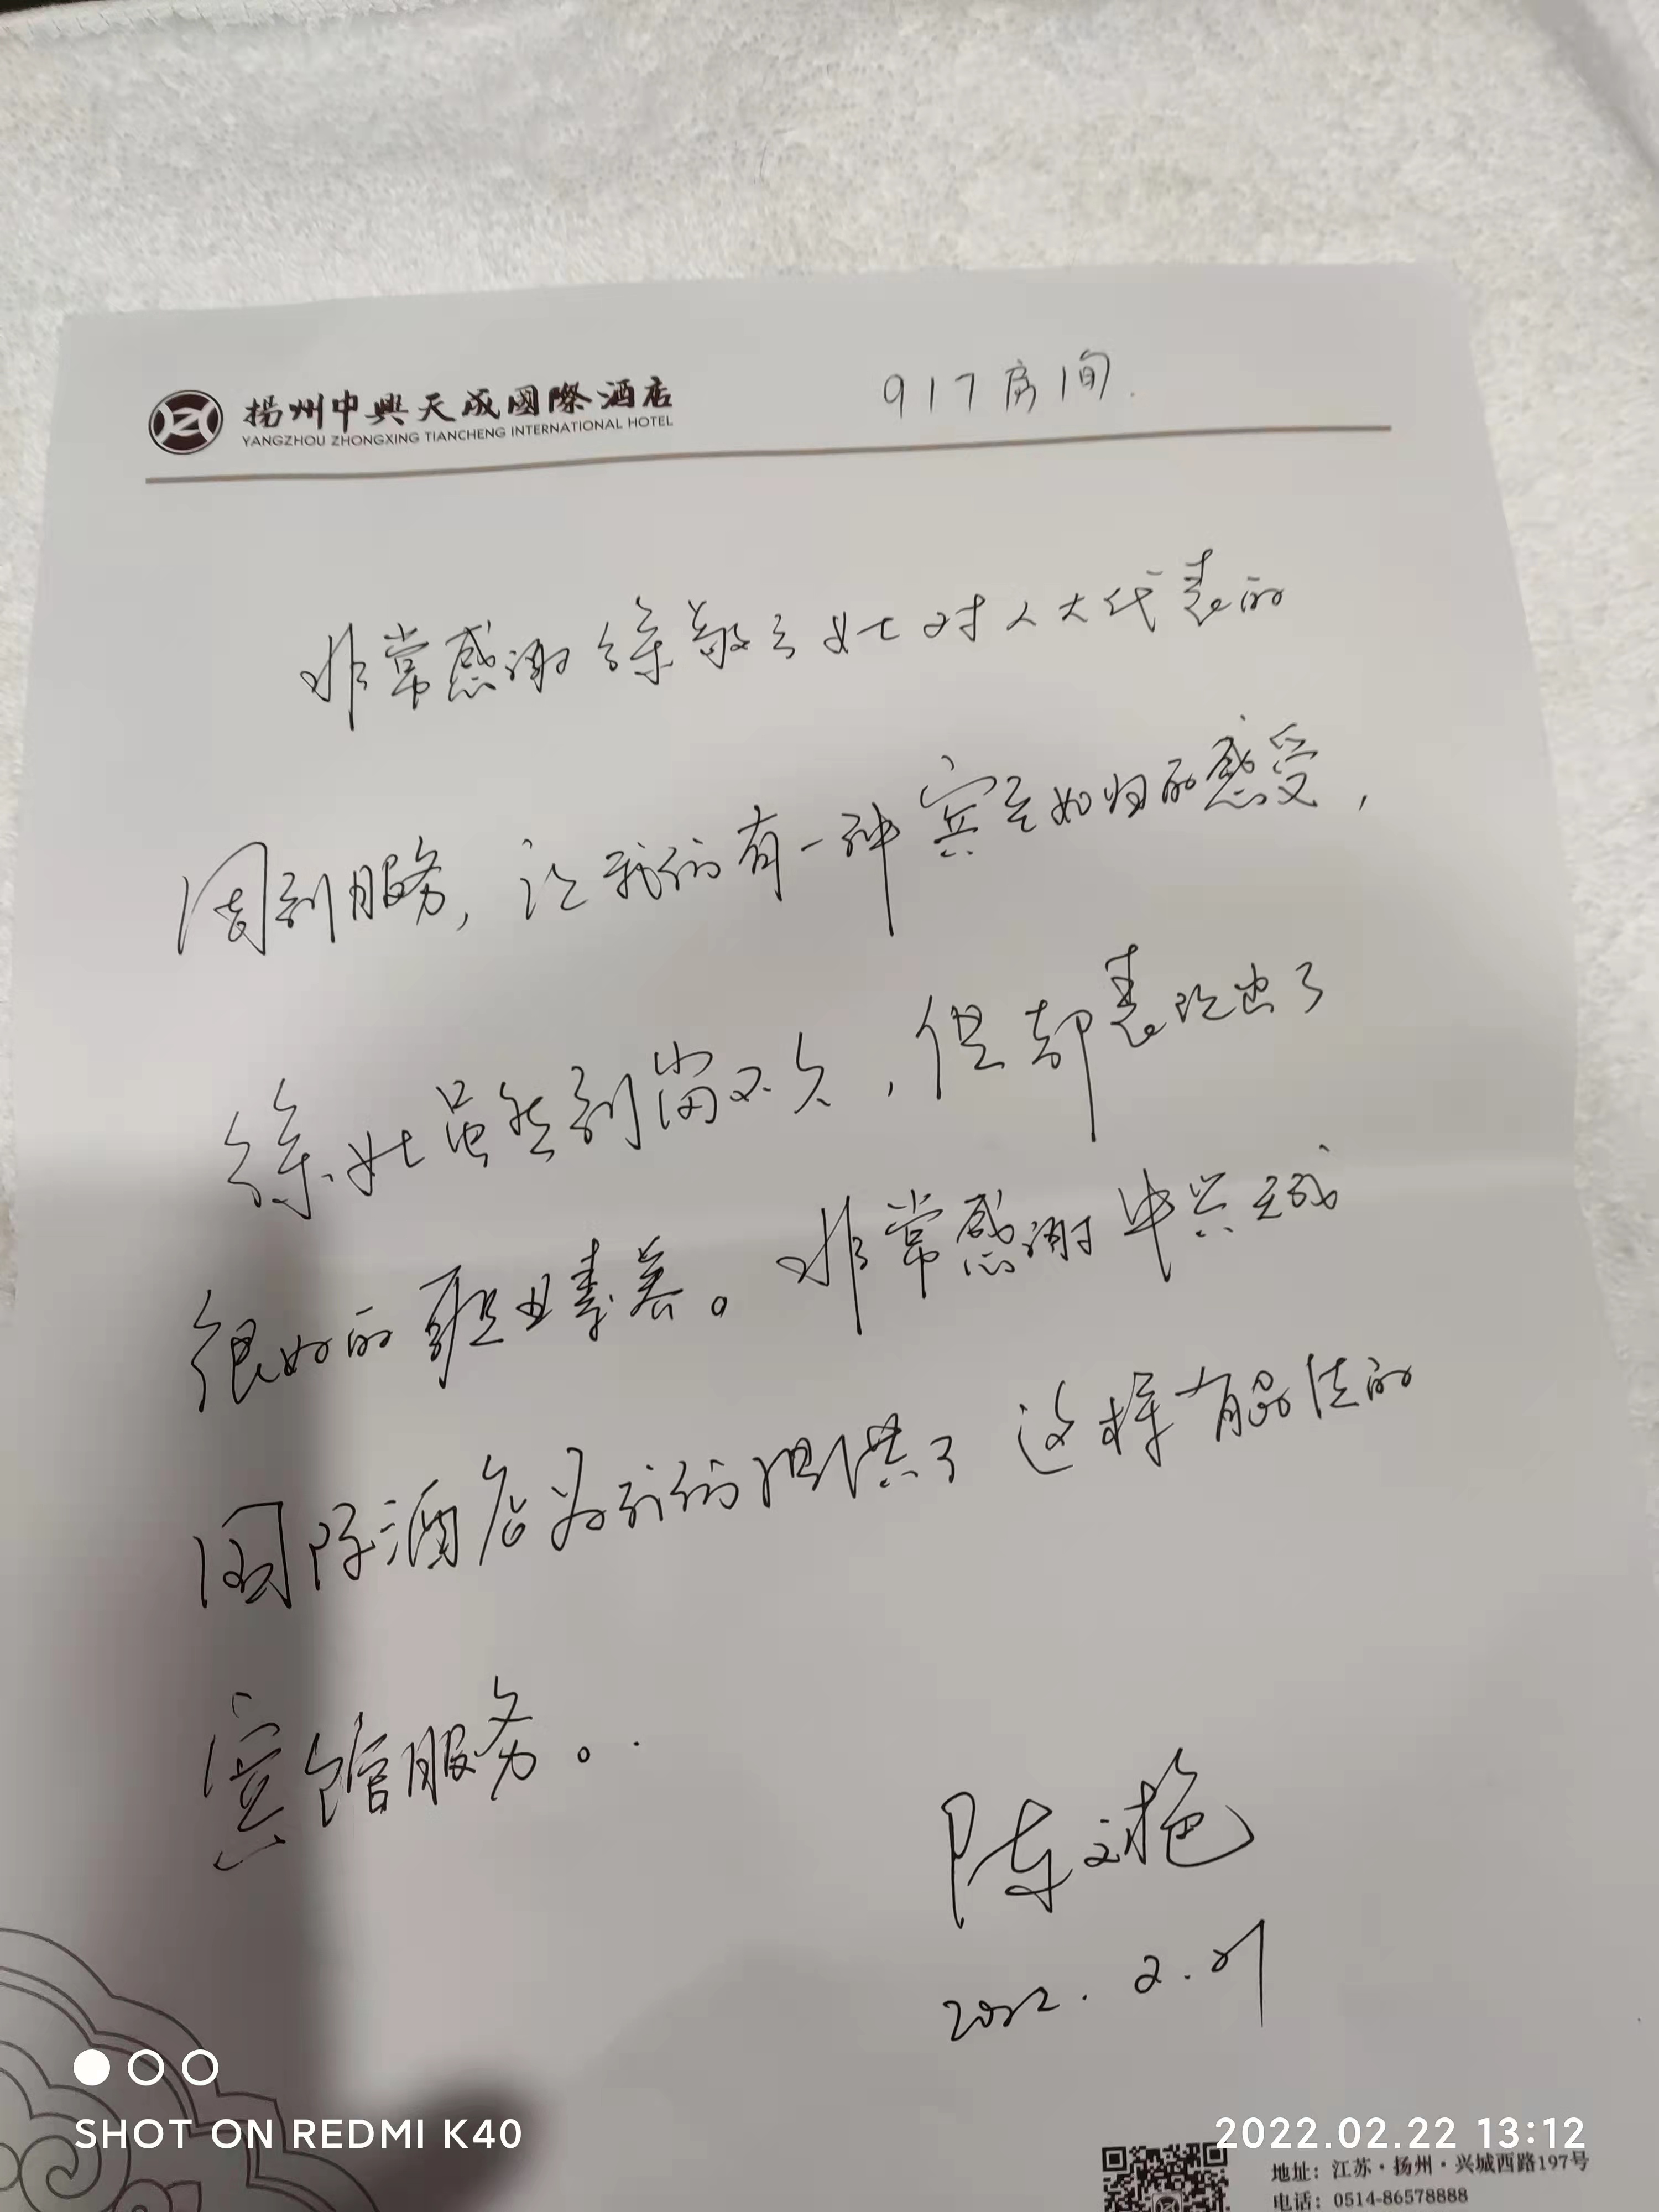 揚州中興天成國際酒店
YANGZHOU ZHONGXING TIANCHENG INTERNATIONAL HOTEL
917房间.
非常感谢徐敬云女士对人大代表的
周到服务，让我们有一种宾至如归的感受，
徐女士虽然到岗不久，但却表现出了
很好的职业素养。非常感谢中兴天成
国际酒店为我们提供了这样有品位的
宾馆服务。
陈文艳
2022.2.21
SHOT ON REDMI K40
2022.02.22 13:12
地址：江苏·扬州·兴城西路197号
电话：0514-86578888